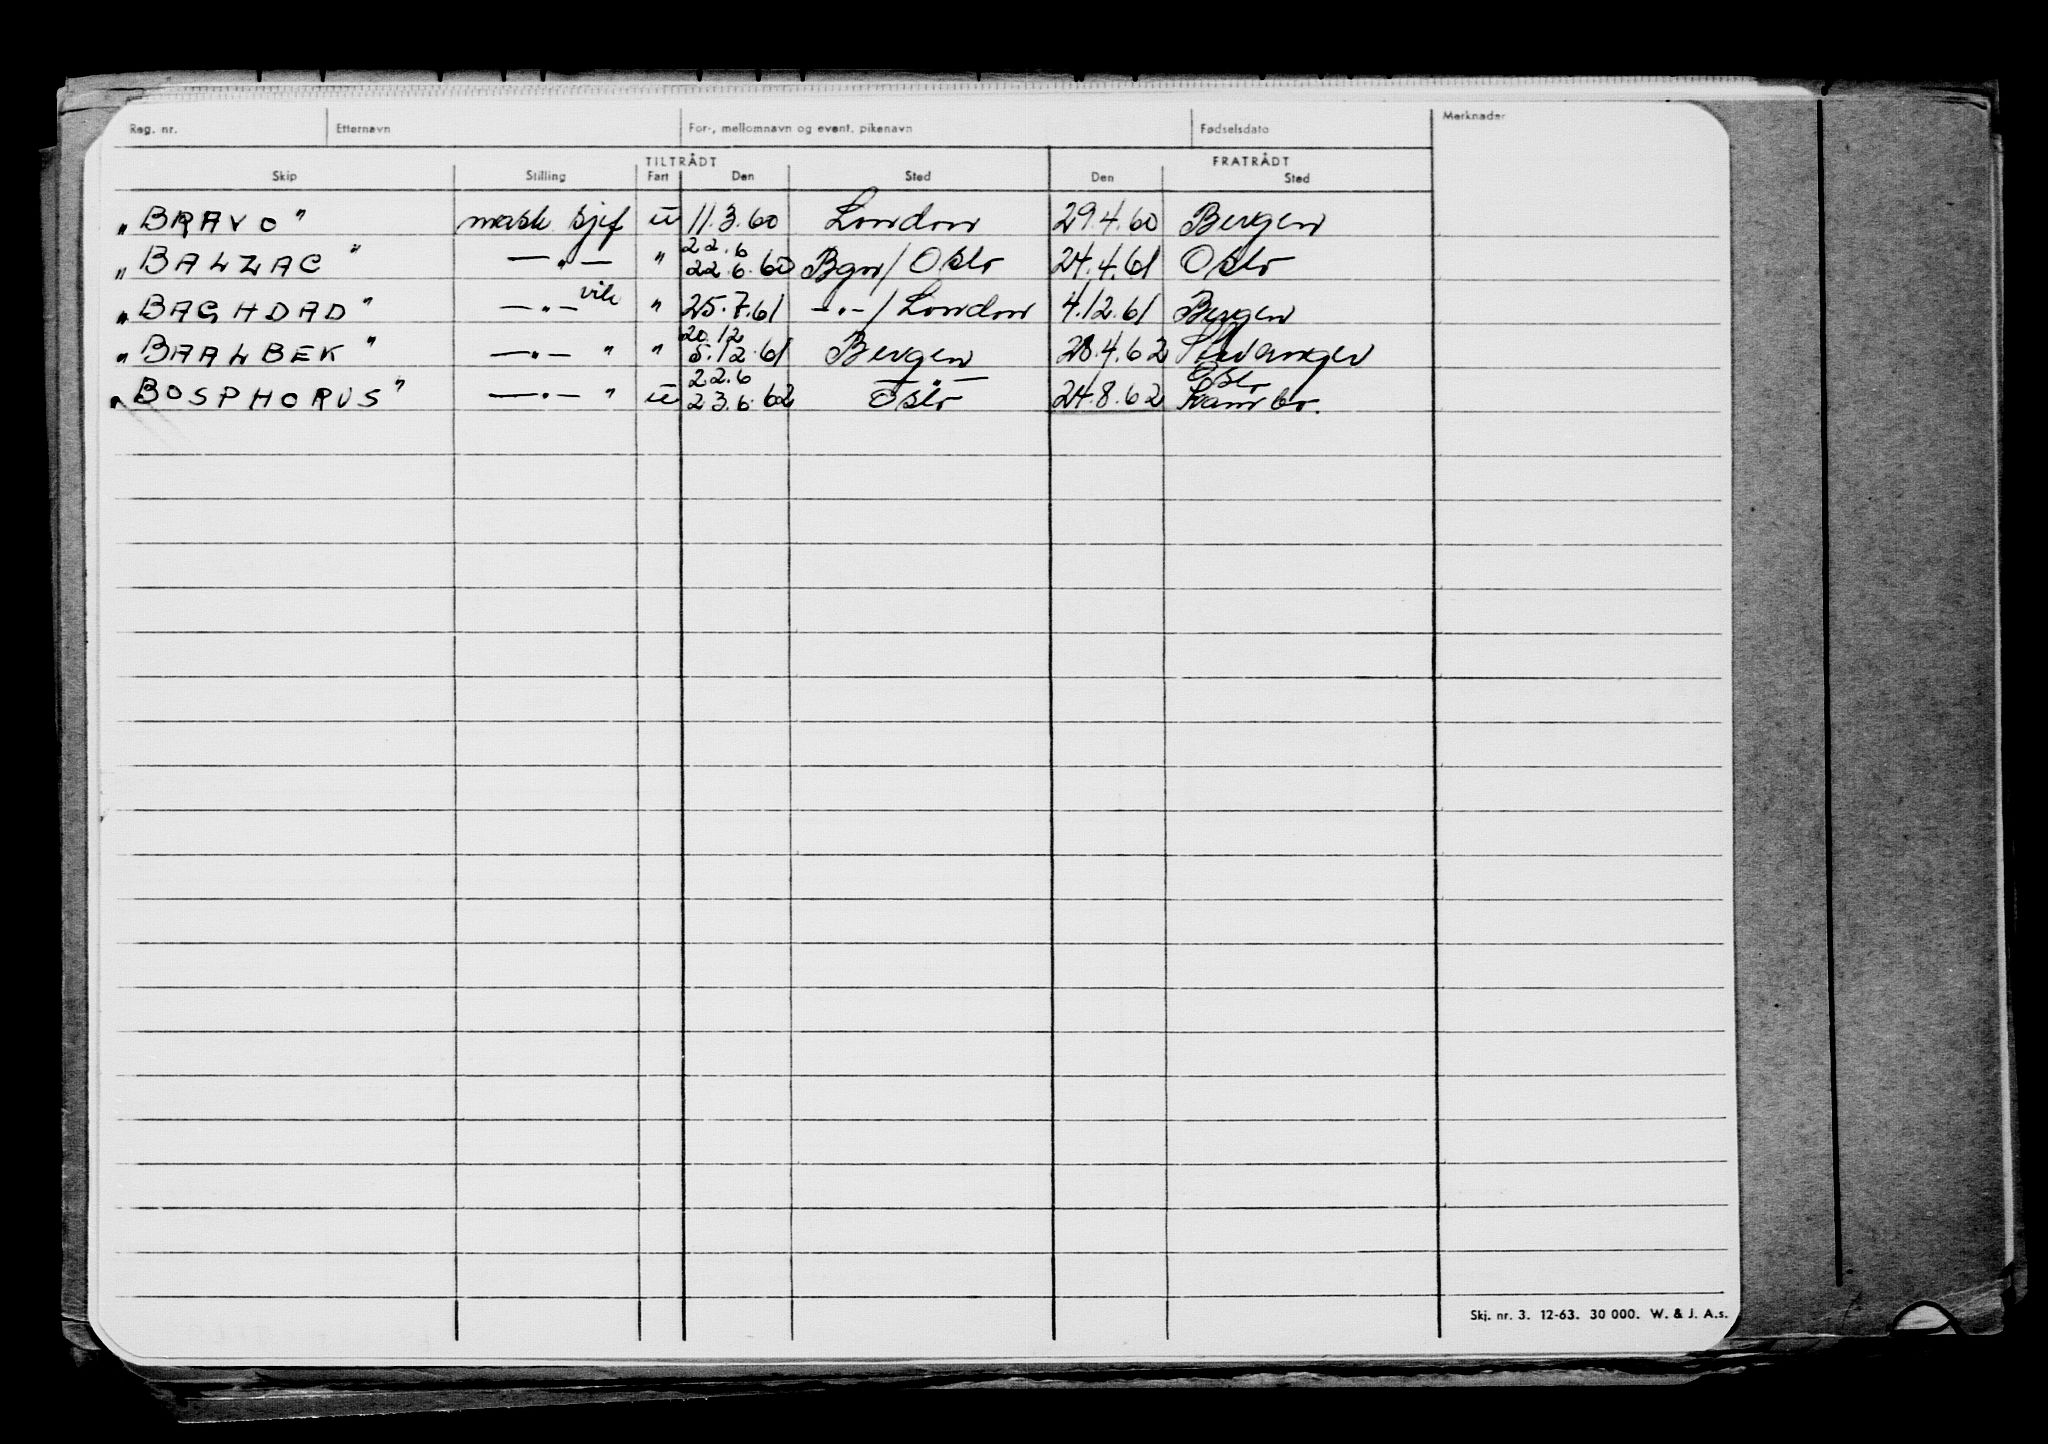 Reg. nr. Etternavn For-, mellomnavn og event. pikenavn Fødselsdato Merknader
TILTRÅDT FRATRÅDT
Skip Stilling Fart Den Sted Den Sted
„BRAVO" mask sjef u 11.3.60 London 29.4.60 Bergen
„BALZAC" —„— " 22.6 22.6.60 Bgn/Oslo 24.4.61 Oslo
„BAGHDAD" —„— vik " 25.7.61 —„—/London 4.12.61 Bergen
„BAALBEK" —„— " " 20.12 5.12.61 Bergen 28.4.62 Stavanger
„BOSPHORUS" —„— " u 22.6 23.6.62 —„— Oslo 24.8.62 Oslo
Skj. nr. 3. 12-63. 30 000. W. & J. A.s.